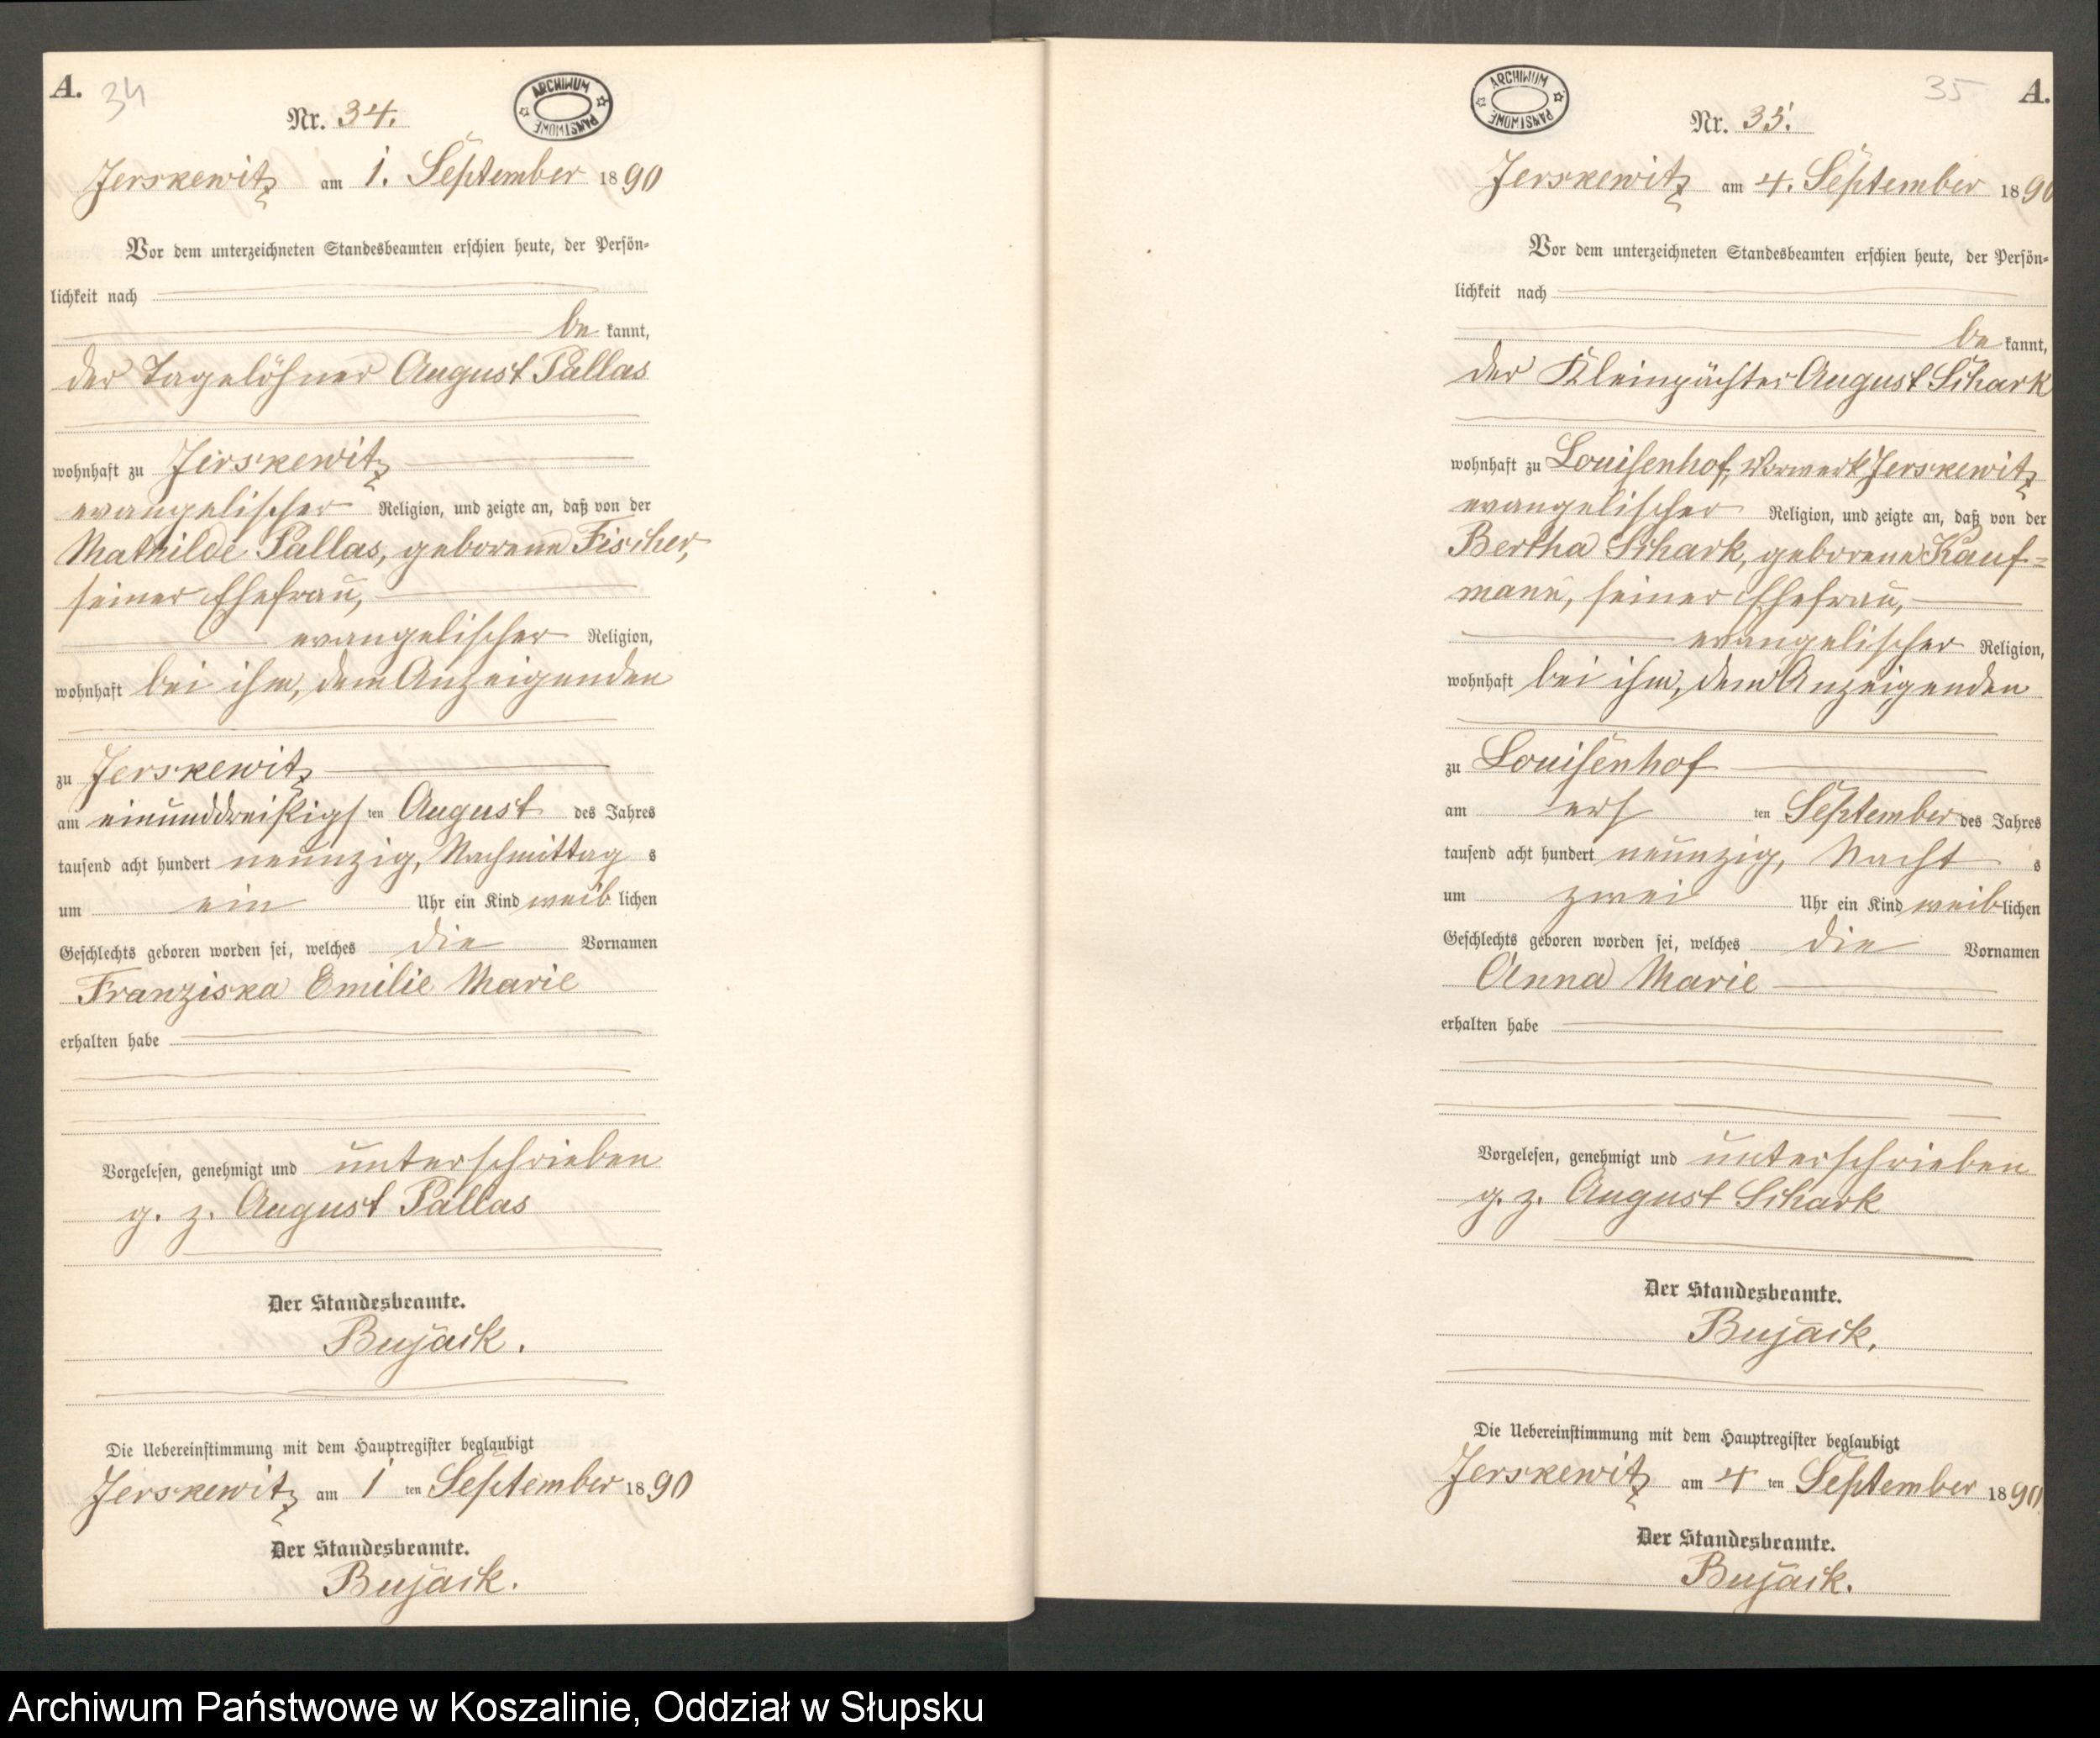 A. 34
ARCHIWUM PAŃSTWOWE
Nr. 34.
Jerskewitz am 1. September 1890
Vor dem unterzeichneten Standesbeamten erschien heute, der Persön-
lichkeit nach
be kannt,
der Tagelöhner August Pallas
wohnhaft zu Jerskewitz
evangelischer Religion, und zeigte an, daß von der
Mathilde Pallas, geborene Fischer,
seiner Ehefrau,
evangelischer Religion,
wohnhaft bei ihm, dem Anzeigenden
zu Jerskewitz
am einunddreißigs ten August des Jahres
tausend acht hundert neunzig, Nachmittag s
um ein Uhr ein Kind weib lichen
Geschlechts geboren worden sei, welches die Vornamen
Franziska Emilie Marie
erhalten habe
Vorgelesen, genehmigt und unterschrieben
g. z. August Pallas
Der Standesbeamte.
Bujack.
Die Uebereinstimmung mit dem Hauptregister beglaubigt
Jerskewitz am 1 ten September 1890
Der Standesbeamte.
Bujack.
35 A.
ARCHIWUM PAŃSTWOWE
Nr. 35.
Jerskewitz am 4. September 1890
Vor dem unterzeichneten Standesbeamten erschien heute, der Persön-
lichkeit nach
be kannt,
der Kleinpächter August Schark
wohnhaft zu Louisenhof, Vorwerk Jerskewitz
evangelischer Religion, und zeigte an, daß von der
Bertha Schark, geborene Kauf-
mann, seiner Ehefrau,
evangelischer Religion,
wohnhaft bei ihm, dem Anzeigenden
zu Louisenhof
am ers ten September des Jahres
tausend acht hundert neunzig, Nacht s
um zwei Uhr ein Kind weib lichen
Geschlechts geboren worden sei, welches die Vornamen
Anna Marie
erhalten habe
Vorgelesen, genehmigt und unterschrieben
g. z. August Schark
Der Standesbeamte.
Bujack.
Die Uebereinstimmung mit dem Hauptregister beglaubigt
Jerskewitz am 4 ten September 1890
Der Standesbeamte.
Bujack.
Archiwum Państwowe w Koszalinie, Oddział w Słupsku